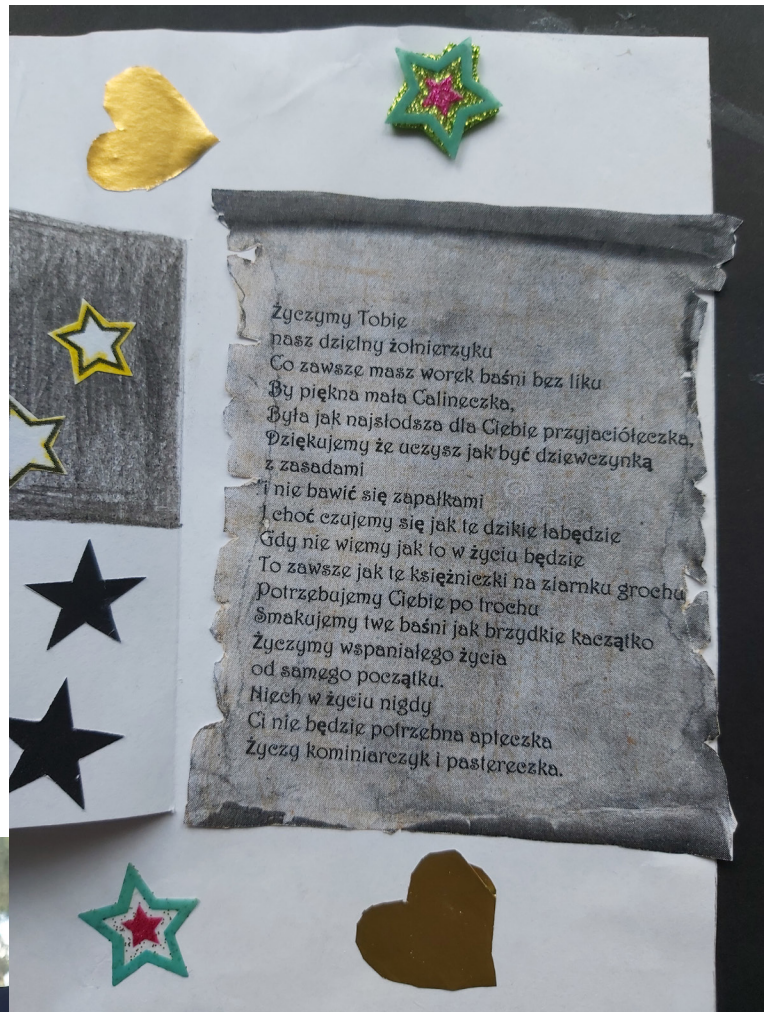 Życzymy Tobie
nasz dzielny żołnierzyku
Co zawsze masz worek baśni bez liku
By piękna mała Calineczka,
Była jak najsłodsza dla Ciebie przyjaciółeczka,
Dziękujemy że uczysz jak być dziewczynką
z zasadami
i nie bawić się zapałkami
I choć czujemy się jak te dzikie łabędzie
Gdy nie wiemy jak to w życiu będzie
To zawsze jak te księżniczki na ziarnku grochu
Potrzebujemy Ciebie po trochu
Smakujemy twe baśni jak brzydkie kaczątko
Życzymy wspaniałego życia
od samego początku.
Niech w życiu nigdy
Ci nie będzie potrzebna apteczka
Życzy kominiarczyk i pastereczka.